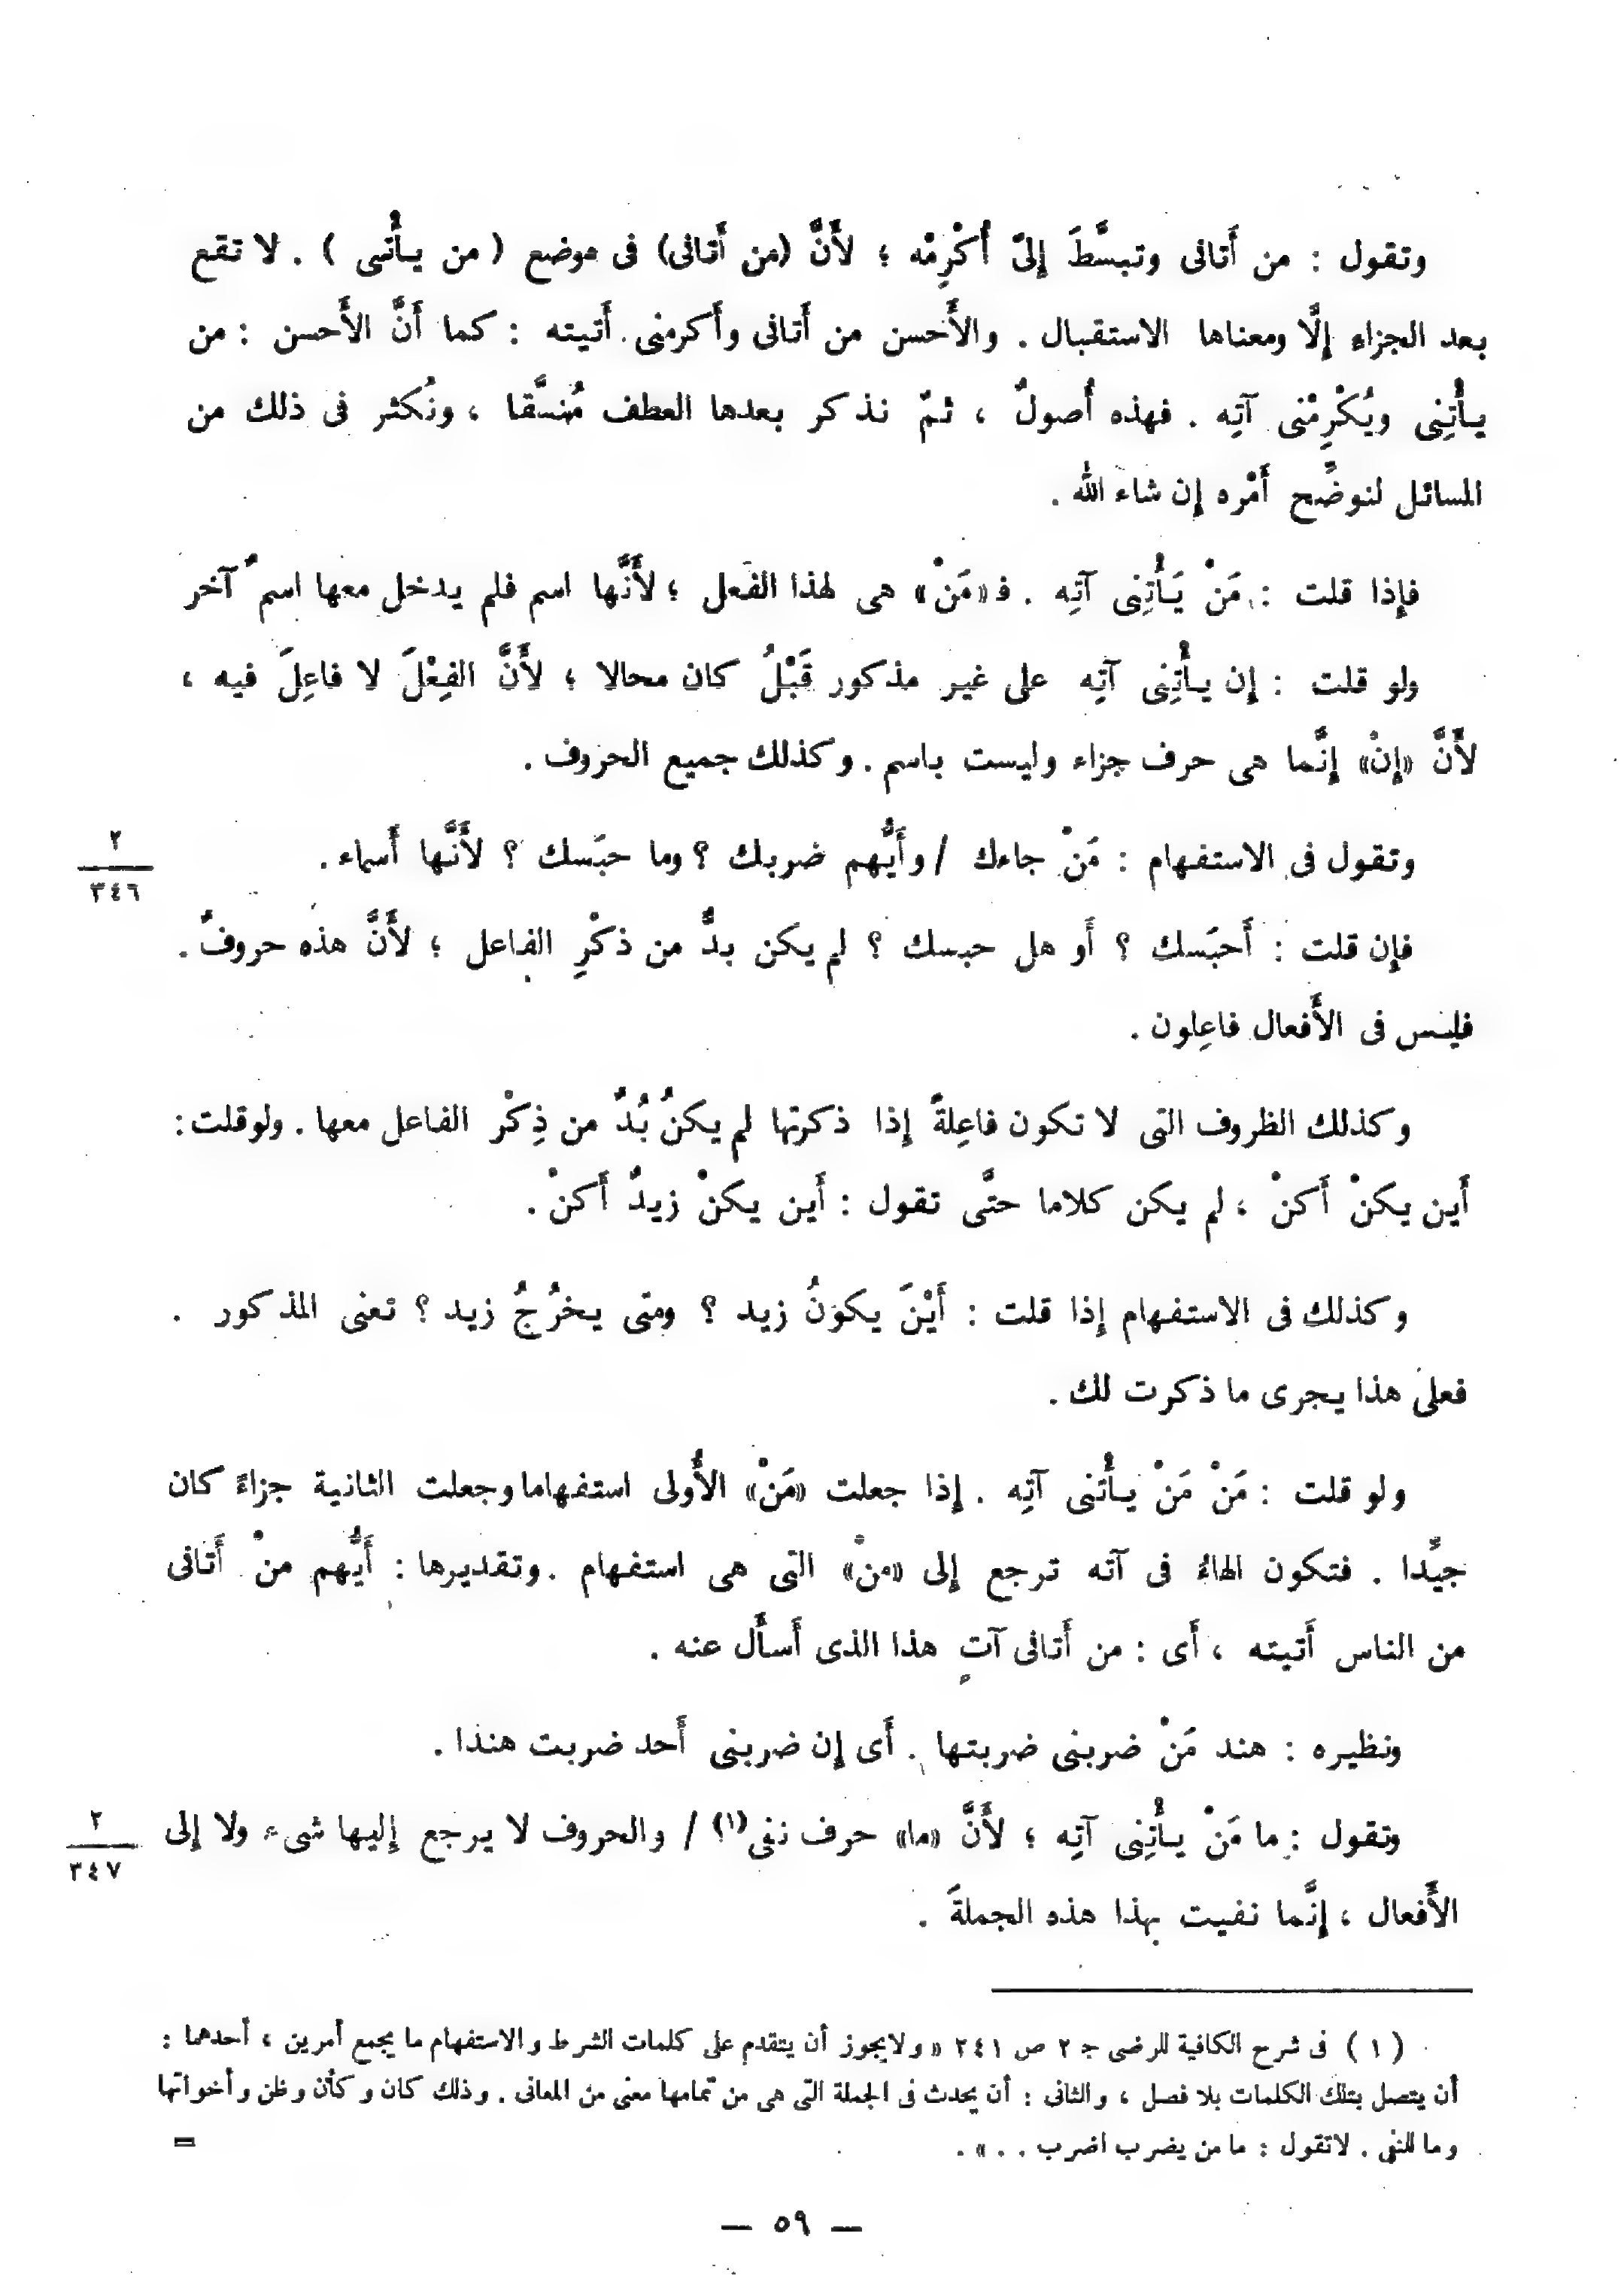 وتقول : من أَتانى وتبسَّطَ إِلىّ أُكْرِمْه ؛ لأَنَّ (من أَتانى) فى موضع ( من يـأْتـى ) . لا تقع
بعد الجزاءِ إِلَّا ومعناها الاستقبال . والأَحسن من أَتانى وأَكرمنى أَتيته : كما أَنَّ الأَحسن : من
يـأْتِنِى ويُكْرِمْنى آتِه . فهذه أُصولٌ ، ثمّ نذكر بعدها العطف مُنسَّقا ، ونُكثر فى ذلك من
المسائل لنوضِّح أَمْره إِن شاءَ الله .
فإِذا قلت : مَنْ يَـأْتِنِى آتِه . فـ«مَنْ» هى لهذا الفعل ؛ لأَنَّها اسم فلم يدخل معها اسمٌ آخر
ولو قلت : إِن يـأْتِنِى آتِه على غير مذكور قَبْلُ كان محالا ؛ لأَنَّ الفِعْلَ لا فاعِلَ فيه ،
لأَنَّ «إِنْ» إِنَّما هى حرف جزاء وليست باسم . وكذلك جميع الحروف .
وتقول فى الاستفهام : مَنْ جاءك / وأَيُّهم ضربك ؟ وما حبَسك ؟ لأَنَّها أَسماء .
٢
٣٤٦
فإِن قلت : أَحبَسك ؟ أَو هل حبسك ؟ لم يكن بدٌّ من ذكْرِ الفاعل ؛ لأَنَّ هذه حروفٌ .
فليس فى الأَفعال فاعِلون .
وكذلك الظروف التى لا تكون فاعِلةً إِذا ذكرتها لم يكنُ بُدٌ من ذِكْر الفاعل معها . ولو قلت :
أَين يكنْ أَكنْ ، لم يكن كلاما حتَّى تقول : أَين يكنْ زيدٌ أَكنْ .
وكذلك فى الاستفهام إِذا قلت : أَيْنَ يكونُ زيد ؟ ومتى يخرُجُ زيد ؟ تعنى المذكور .
فعلى هذا يجرى ما ذكرت لك .
ولو قلت : مَنْ مَنْ يـأْتنى آتِه . إِذا جعلت «مَنْ» الأُولى استفهاما وجعلت الثانية جزاءً كان
جيِّدا . فتكون الهاءُ فى آته ترجع إِلى «منْ» التى هى استفهام . وتقديرها : أَيُّهم منْ أَتانى
من الناس أَتيته ، أَى : من أَتانى آتٍ هذا الذى أَسأَل عنه .
ونظيره : هند مَنْ ضربنى ضربتها . أَى إِن ضربنى أَحد ضربت هندا .
وتقول : ما مَنْ يـأْتِنِى آتِه ؛ لأَنَّ «ما» حرف نفى(١) / والحروف لا يرجع إِليها شىء ولا إِلى
٢
٣٤٧
الأَفعال ، إِنَّما نفيت بهذا هذه الجملةَ .
( ١ ) فى شرح الكافية للرضى ج ٢ ص ٢٤١ « ولايجوز أن يتقدم على كلمات الشرط والاستفهام ما يجمع أمرين ، أحدهما :
أن يتصل بتلك الكلمات بلا فصل ، والثانى : أن يحدث فى الجملة التى هى من تمامها معنى من المعانى . وذلك كان وكأن وظن وأخواتها
وما للنفى . لاتقول : ما من يضرب اضرب . . » .
=
— ٥٩ —